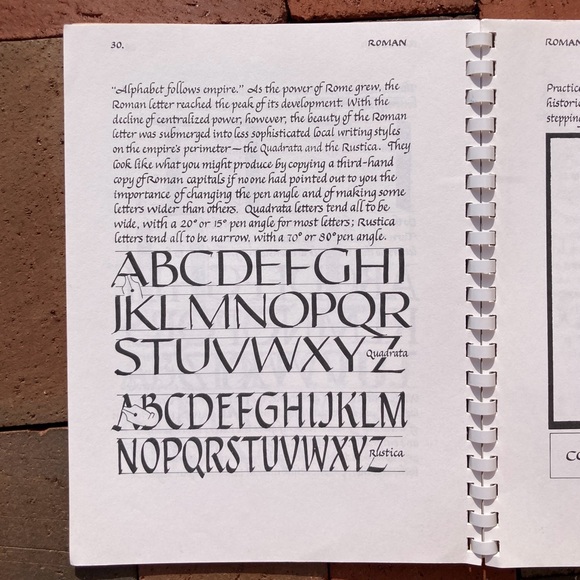 30.
ROMAN
"Alphabet follows empire." As the power of Rome grew, the
Roman letter reached the peak of its development. With the
decline of centralized power, however, the beauty of the Roman
letter was submerged into less sophisticated local writing styles
on the empire's perimeter — the Quadrata and the Rustica. They
look like what you might produce by copying a third-hand
copy of Roman capitals if no one had pointed out to you the
importance of changing the pen angle and of making some
letters wider than others. Quadrata letters tend all to be
wide, with a 20° or 15° pen angle for most letters; Rustica
letters tend all to be narrow, with a 70° or 80° pen angle.
ABCDEFGHI
JKLMNOPQR
STUVWXYZ Quadrata
ABCDEFGHIJKLM
NOPQRSTUVWXYZ Rustica
ROMAN
Practice